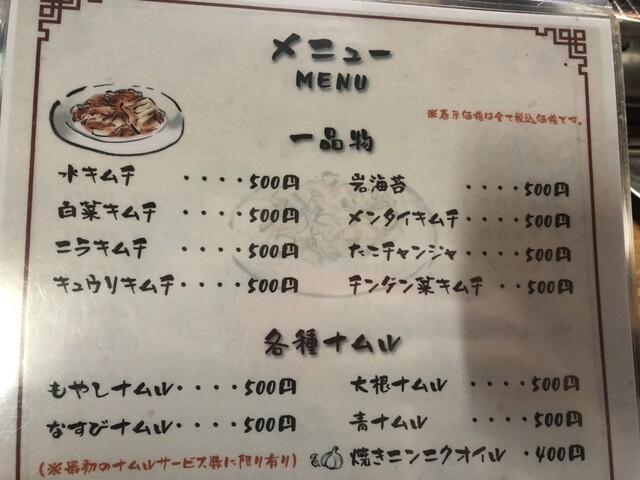 メニュー
MENU
※表示価格は全て税込価格です。
一品物
水キムチ ････500円
白菜キムチ ････500円
ニラキムチ ････500円
キュウリキムチ ････500円
岩海苔 ････500円
メンタイキムチ････500円
たこチャンジャ････500円
チンゲン菜キムチ ･･500円
各種ナムル
もやしナムル････500円
なすびナムル････500円
(※最初のナムルサービス数に限り有り)
大根ナムル ････500円
青ナムル ････500円
焼きニンニクオイル ･400円